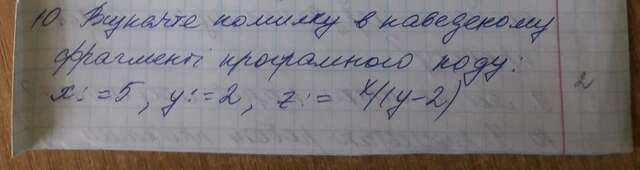 10. Вкажіть помилку в наведеному
фрагменті програмного коду:
x:=5, y:=2, z:= x/(y-2)
2